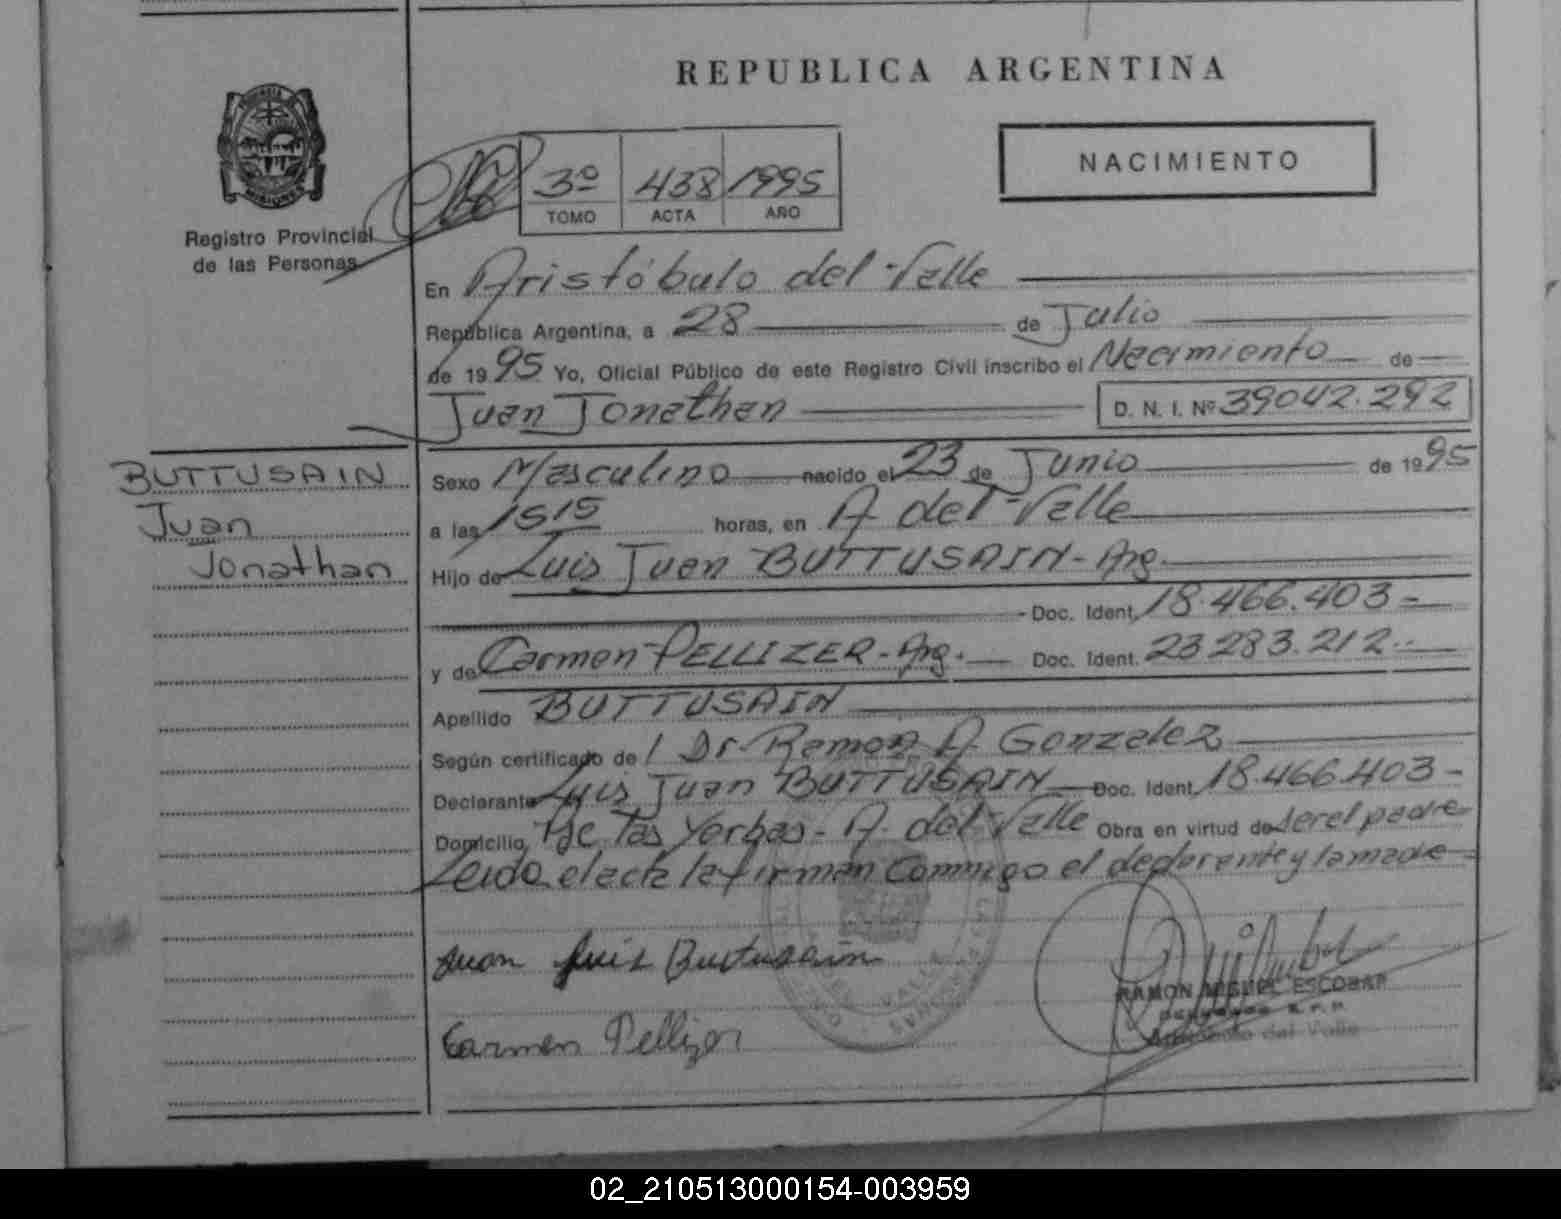 REPUBLICA ARGENTINA
NACIMIENTO
PROVINCIA DE
MISIONES
Registro Provincial
de las Personas
3º 438 1995
TOMO ACTA AÑO
En Aristóbulo del Valle
República Argentina, a 28 de Julio
de 1995 Yo, Oficial Público de este Registro Civil inscribo el Nacimiento de
Juan Jonathan D. N. I. Nº 39042.292
BUTTUSAIN
Juan
Jonathan
Sexo Masculino nacido el 23 de Junio de 1995
a las 1515 horas, en A. del Valle
Hijo de Luis Juan BUTTUSAIN - Arg.
Doc. Ident. 18.466.403 -
y de Carmen PELLIZER - Arg. Doc. Ident. 23 283.212.-
Apellido BUTTUSAIN
Según certificado de / Dr. Ramon A. Gonzalez
Declarante Luis Juan BUTTUSAIN Doc. Ident. 18.466.403 -
Domicilio Yerbas - A. del Valle Obra en virtud de ser el padre
Leida el acta la firman Conmigo el declarante y la madre
Juan Luis Buttusain
RAMON MIGUEL ESCOBAR
Aristobulo del Valle
Carmen Pellizer
02_210513000154-003959